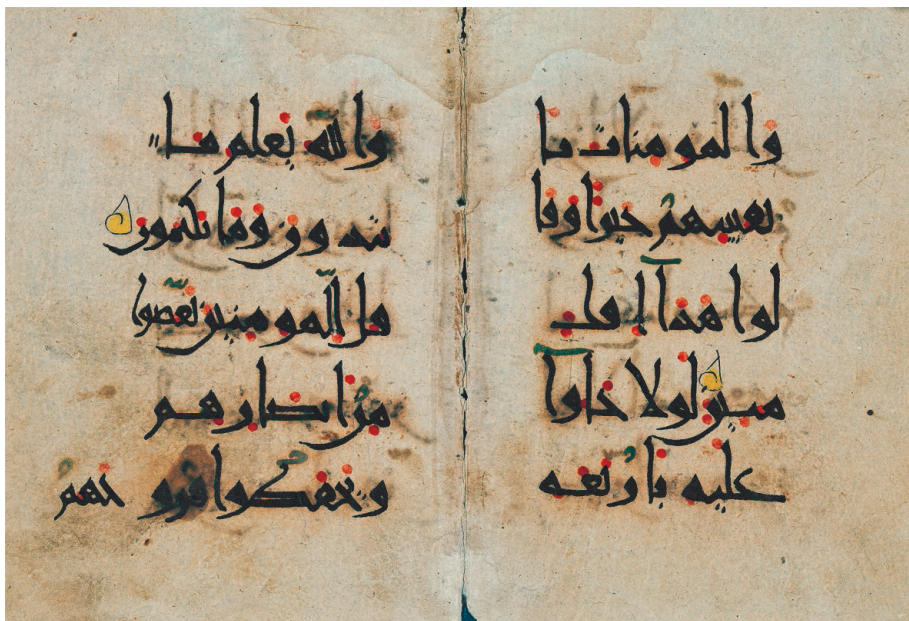 والمومنات با
نفسهم خيرا وقا
لوا هذا افك
مبين لولا جاوا
عليه باربعه
والله يعلم ما
تبدون وما تكتمون
قل للمومنين يغضوا
من ابصارهم
ويحفظوا فروجهم